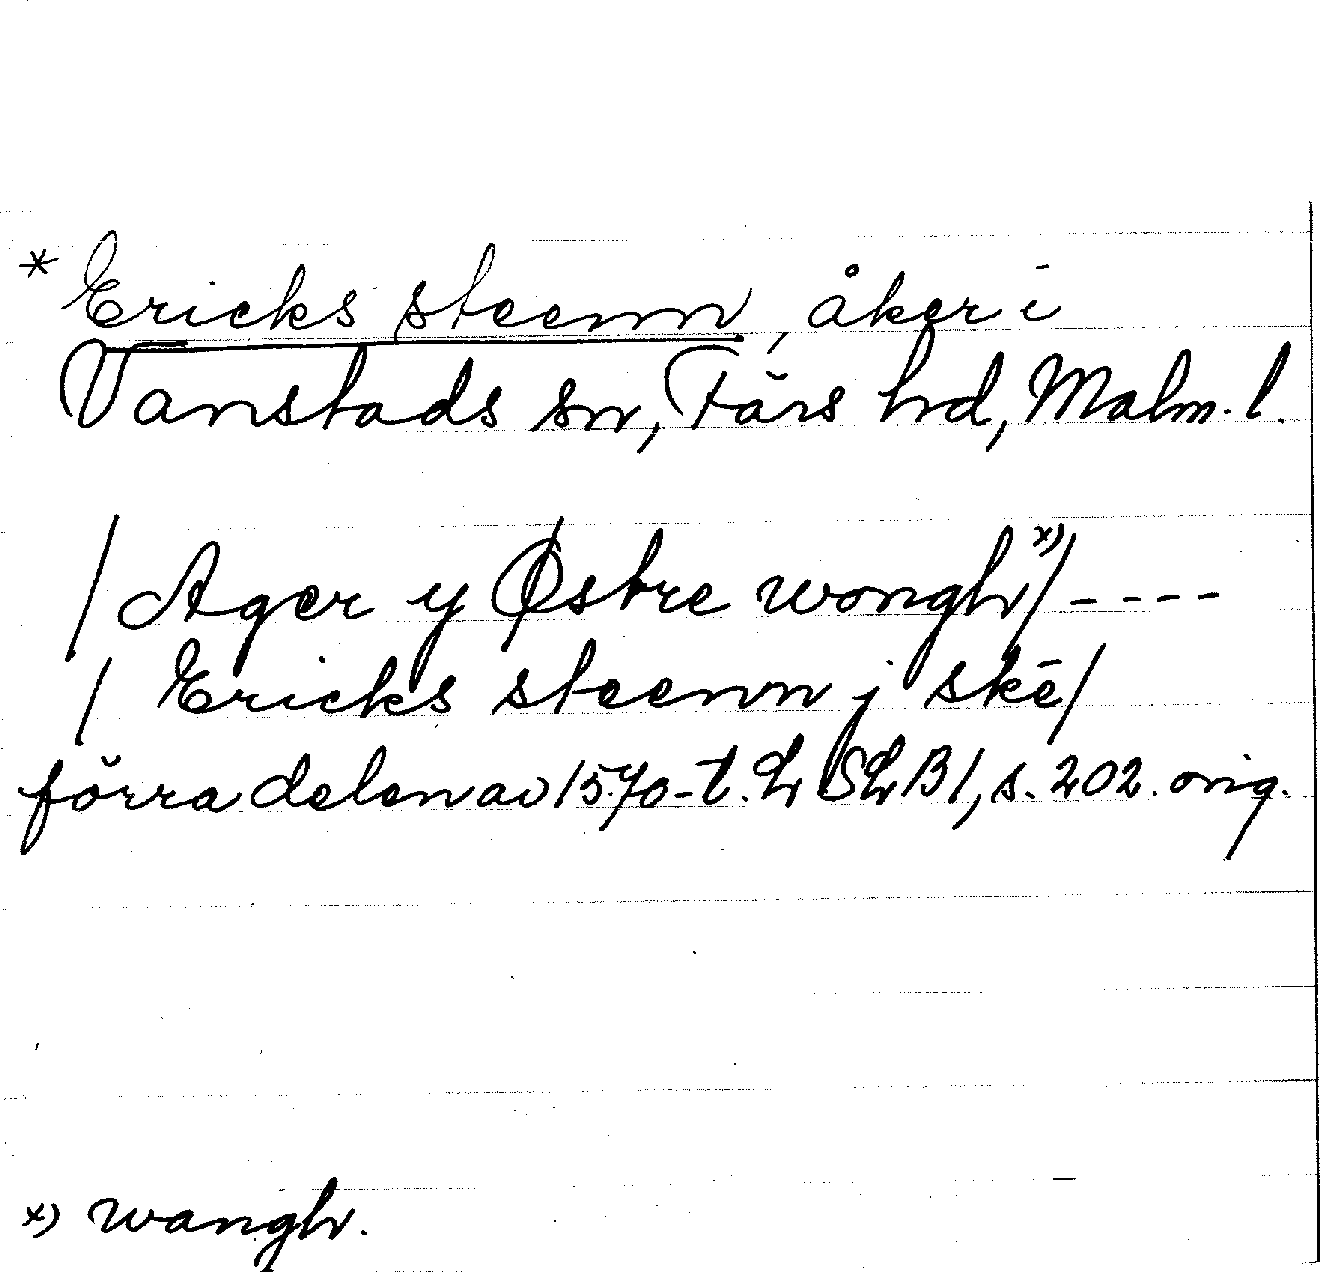 * Ericks steenn, åker i
Vanstads sn, Färs hd, Malm. l.
/Ager y Østre wongh x)/----
/ Ericks steenn j skē/
förra delen av 1570-t. LSLB1, s. 202. orig.
x) wangh.